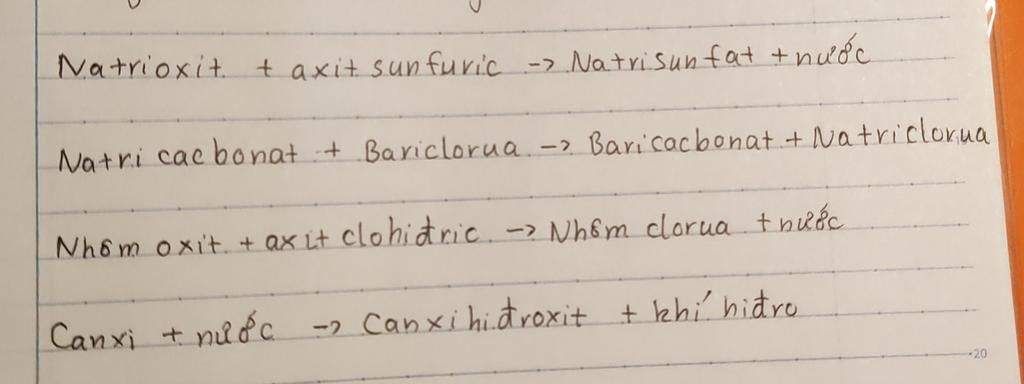 Natrioxit + axit sunfuric -> Natrisunfat + nước
Natri cacbonat + Bariclorua -> Baricacbonat + Natriclorua
Nhôm oxit + axit clohiđric -> Nhôm clorua + nước
Canxi + nước -> Canxihiđroxit + khí hiđro
20